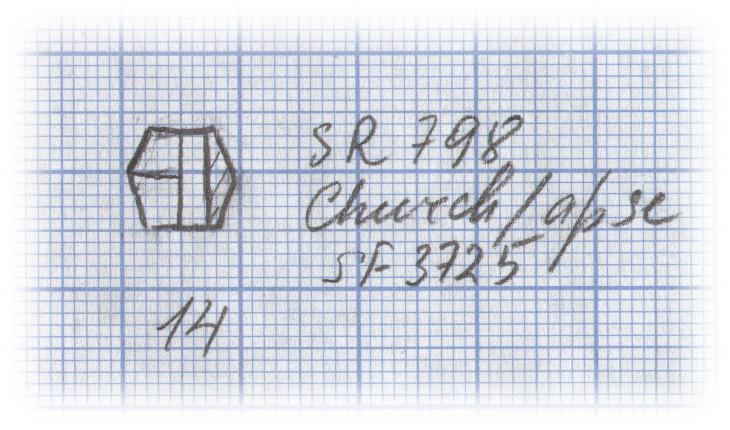 SR 798
Church/apse
SF 3725
14